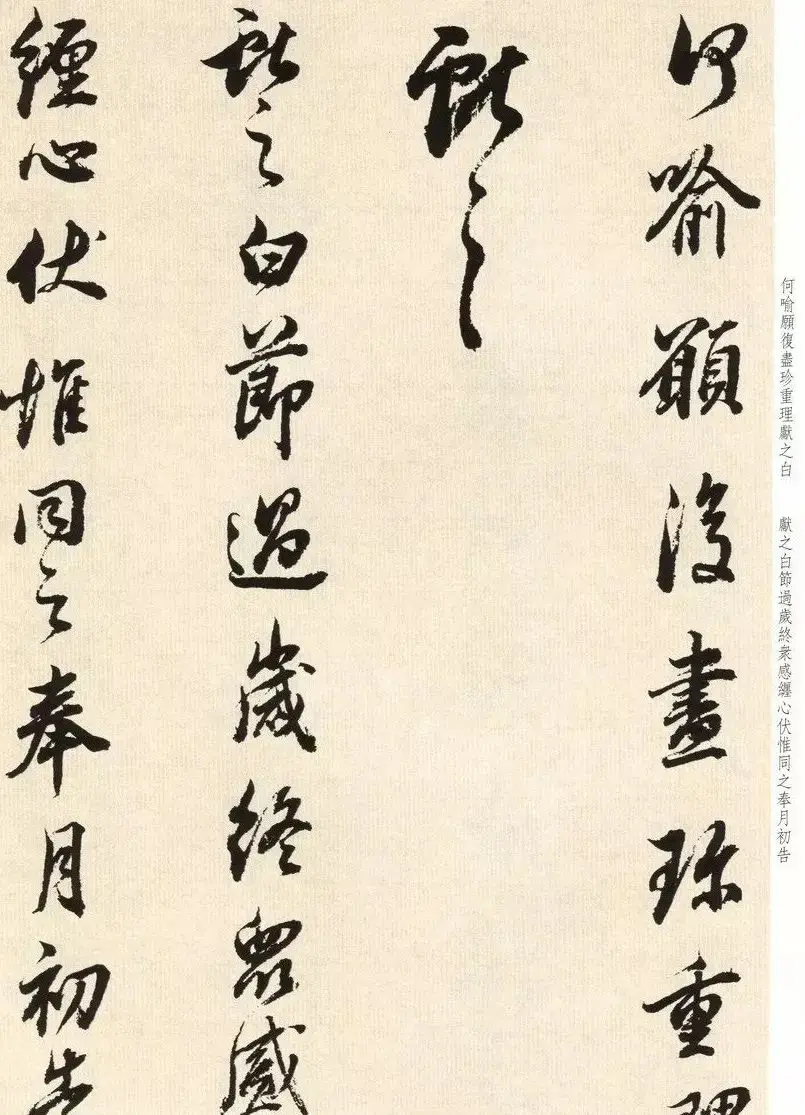 何喻願復盡珍重理獻之白　獻之白節過歲終衆感纏心伏惟同之奉月初告
何喻願復盡珍重理
獻之
獻之白節過歲終衆感
纏心伏惟同之奉月初告